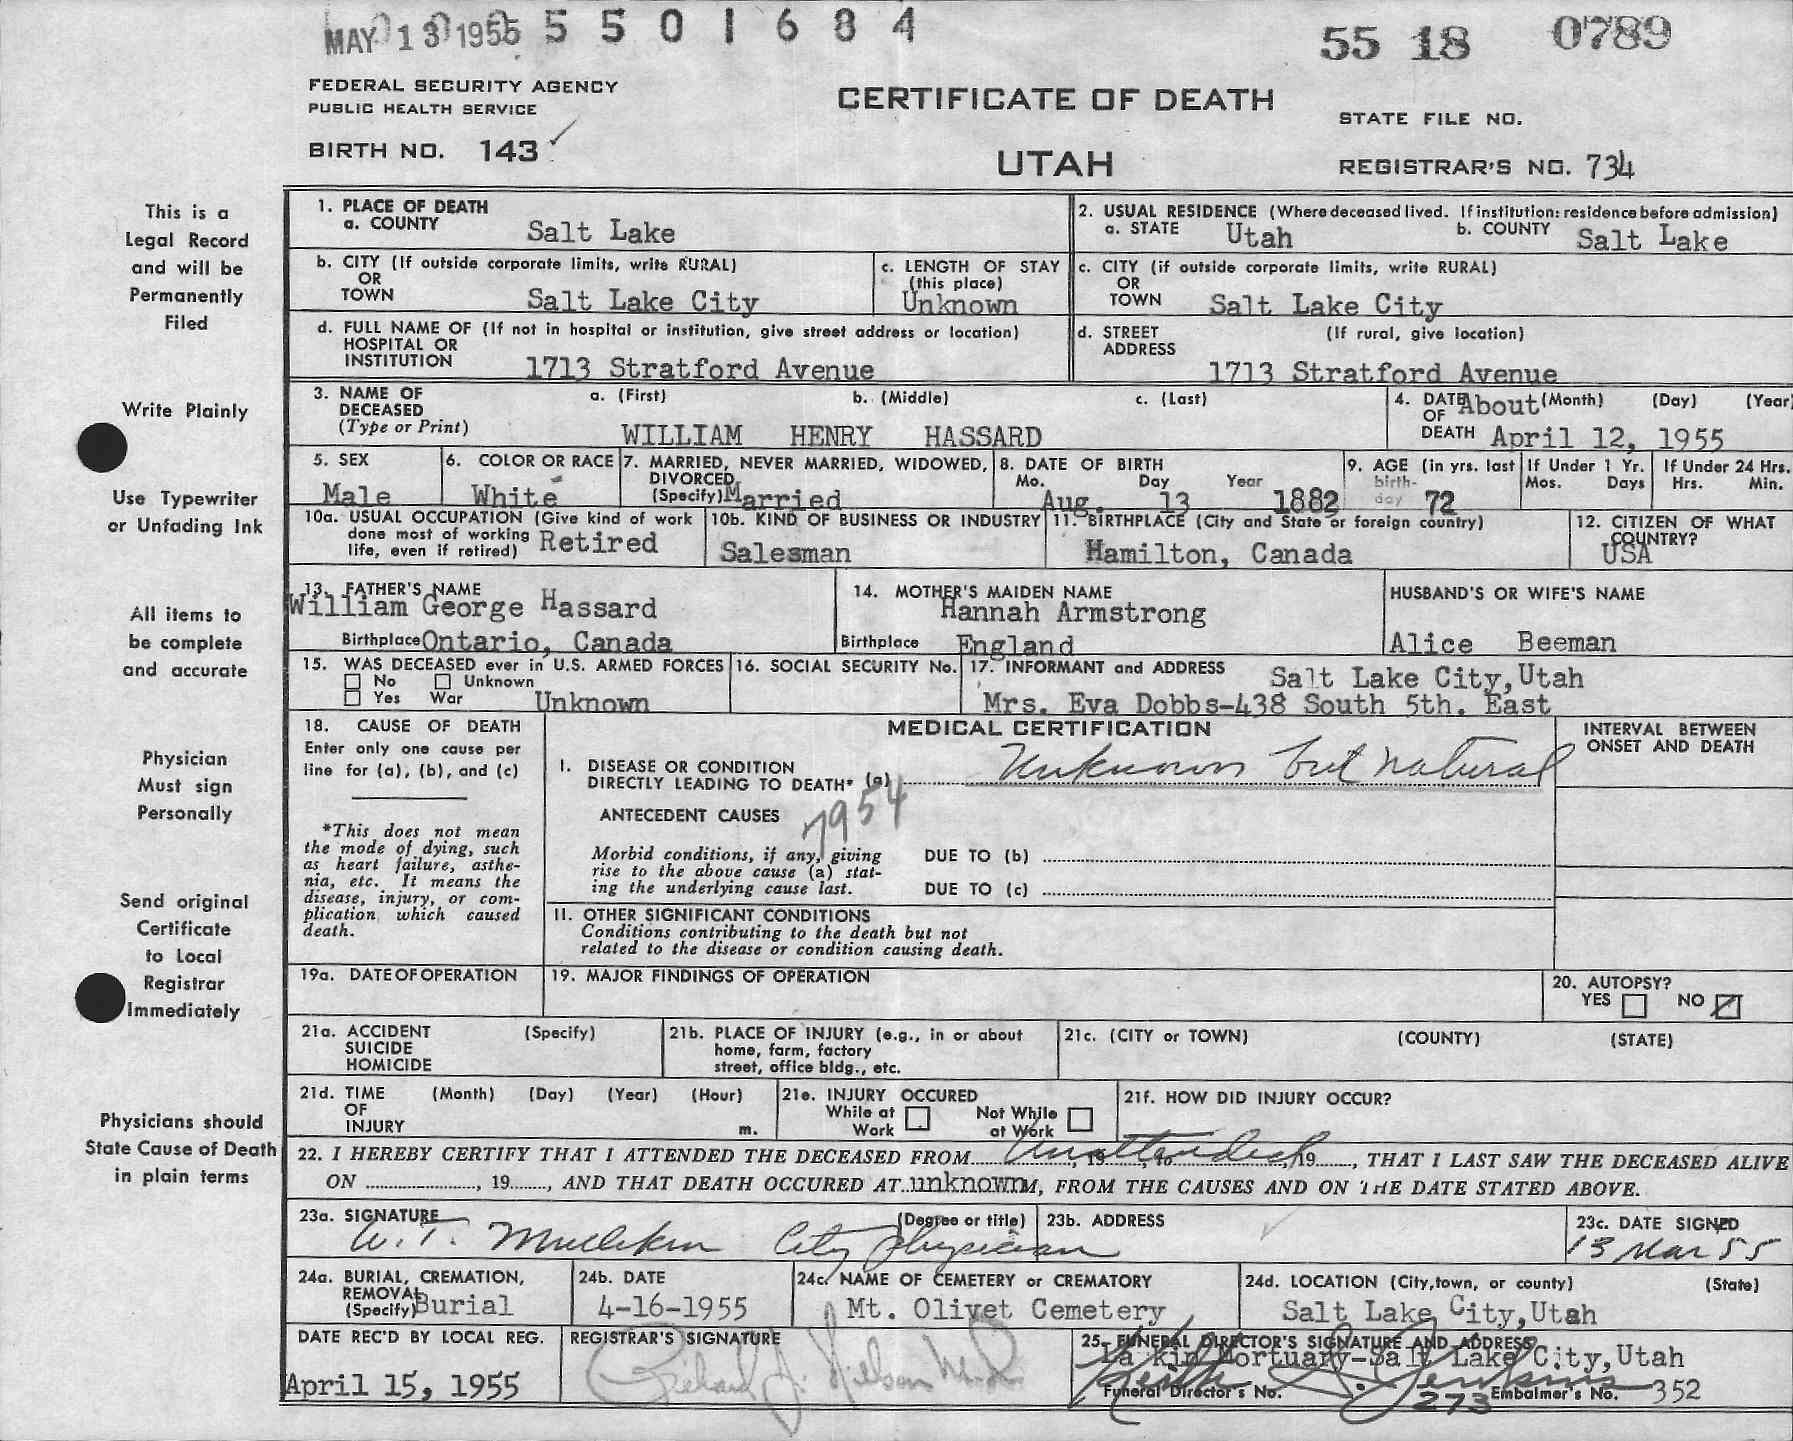 MAY 13 1955 5 5 0 1 6 8 4
55 18 0789
FEDERAL SECURITY AGENCY
PUBLIC HEALTH SERVICE
CERTIFICATE OF DEATH
STATE FILE NO.
BIRTH NO. 143
UTAH
REGISTRAR'S NO. 734
This is a
Legal Record
and will be
Permanently
Filed
Write Plainly
Use Typewriter
or Unfading Ink
All items to
be complete
and accurate
Physician
Must sign
Personally
Send original
Certificate
to Local
Registrar
Immediately
Physicians should
State Cause of Death
in plain terms
1. PLACE OF DEATH
a. COUNTY Salt Lake
2. USUAL RESIDENCE (Where deceased lived. If institution: residence before admission)
a. STATE Utah b. COUNTY Salt Lake
b. CITY (If outside corporate limits, write RURAL)
OR
TOWN Salt Lake City
c. LENGTH OF STAY
(this place)
Unknown
c. CITY (if outside corporate limits, write RURAL)
OR
TOWN Salt Lake City
d. FULL NAME OF (If not in hospital or institution, give street address or location)
HOSPITAL OR
INSTITUTION 1713 Stratford Avenue
d. STREET (If rural, give location)
ADDRESS
1713 Stratford Avenue
3. NAME OF a. (First) b. (Middle) c. (Last)
DECEASED
(Type or Print) WILLIAM HENRY HASSARD
4. DATE About (Month) (Day) (Year)
OF
DEATH April 12, 1955
5. SEX
Male
6. COLOR OR RACE
White
7. MARRIED, NEVER MARRIED, WIDOWED,
DIVORCED
(Specify) Married
8. DATE OF BIRTH
Mo. Day Year
Aug. 13 1882
9. AGE (in yrs. last
birth-
day 72
If Under 1 Yr.
Mos. Days
If Under 24 Hrs.
Hrs. Min.
10a. USUAL OCCUPATION (Give kind of work
done most of working
life, even if retired) Retired
10b. KIND OF BUSINESS OR INDUSTRY
Salesman
11. BIRTHPLACE (City and State or foreign country)
Hamilton, Canada
12. CITIZEN OF WHAT
COUNTRY?
USA
13. FATHER'S NAME
William George Hassard
Birthplace Ontario, Canada
14. MOTHER'S MAIDEN NAME
Hannah Armstrong
Birthplace England
HUSBAND'S OR WIFE'S NAME
Alice Beeman
15. WAS DECEASED ever in U.S. ARMED FORCES
No Unknown
Yes War Unknown
16. SOCIAL SECURITY No.
17. INFORMANT and ADDRESS Salt Lake City, Utah
Mrs. Eva Dobbs-438 South 5th. East
18. CAUSE OF DEATH
Enter only one cause per
line for (a), (b), and (c)
*This does not mean
the mode of dying, such
as heart failure, asthe-
nia, etc. It means the
disease, injury, or com-
plication which caused
death.
MEDICAL CERTIFICATION
INTERVAL BETWEEN
ONSET AND DEATH
I. DISEASE OR CONDITION
DIRECTLY LEADING TO DEATH* (a) Unknown but natural
ANTECEDENT CAUSES 7954
Morbid conditions, if any, giving
rise to the above cause (a) stat-
ing the underlying cause last.
DUE TO (b)
DUE TO (c)
II. OTHER SIGNIFICANT CONDITIONS
Conditions contributing to the death but not
related to the disease or condition causing death.
19a. DATE OF OPERATION
19. MAJOR FINDINGS OF OPERATION
20. AUTOPSY?
YES NO
21a. ACCIDENT (Specify)
SUICIDE
HOMICIDE
21b. PLACE OF INJURY (e.g., in or about
home, farm, factory
street, office bldg., etc.
21c. (CITY or TOWN) (COUNTY) (STATE)
21d. TIME (Month) (Day) (Year) (Hour)
OF
INJURY m.
21e. INJURY OCCURED
While at Not While
Work at Work
21f. HOW DID INJURY OCCUR?
22. I HEREBY CERTIFY THAT I ATTENDED THE DECEASED FROM Unattended, 19, to, 19, THAT I LAST SAW THE DECEASED ALIVE
ON, 19, AND THAT DEATH OCCURED AT unknown M, FROM THE CAUSES AND ON THE DATE STATED ABOVE.
23a. SIGNATURE (Degree or title)
W. T. City Physician
23b. ADDRESS
23c. DATE SIGNED
13 Mar 55
24a. BURIAL, CREMATION,
REMOVAL
(Specify) Burial
24b. DATE
4-16-1955
24c. NAME OF CEMETERY or CREMATORY
Mt. Olivet Cemetery
24d. LOCATION (City, town, or county) (State)
Salt Lake City, Utah
DATE REC'D BY LOCAL REG.
April 15, 1955
REGISTRAR'S SIGNATURE
Richard J. Nelson M.D.
25. FUNERAL DIRECTOR'S SIGNATURE AND ADDRESS
Mortuary-Salt Lake City, Utah
Jenkins
Funeral Director's No. 273 Embalmer's No. 352